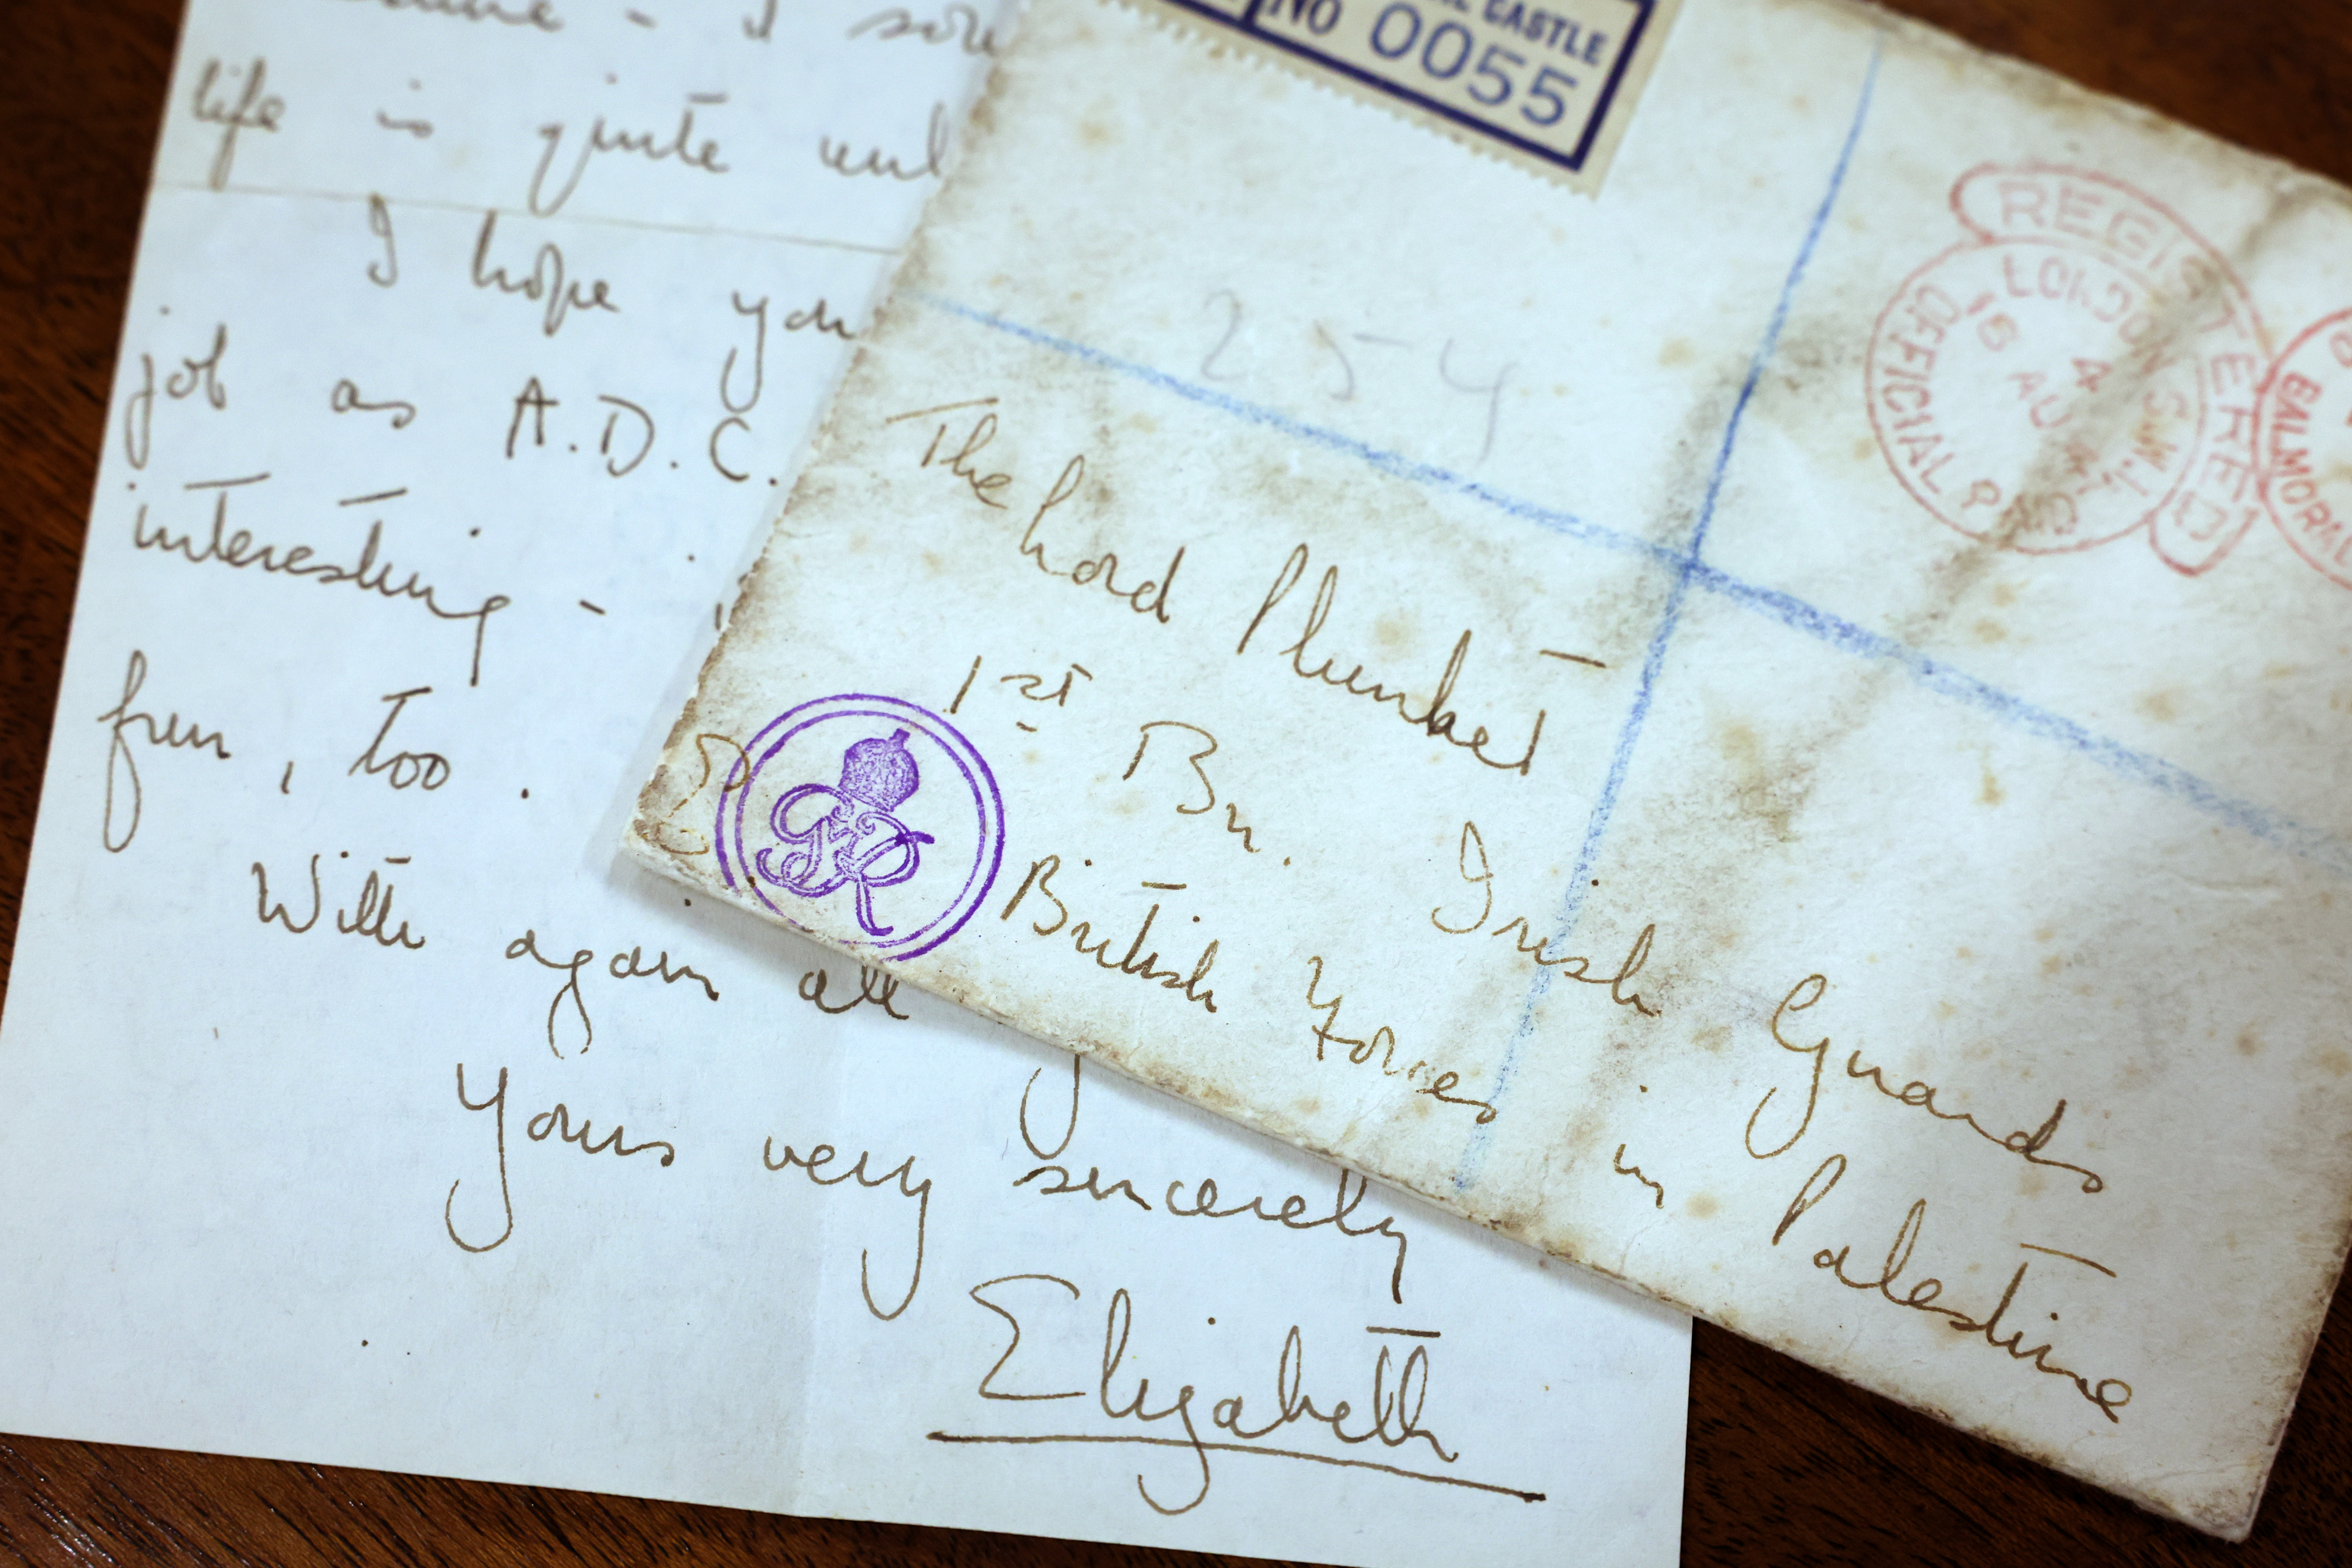 life is quite
I hope you
job as A.D.C.
interesting -
fun, too.
With again all
Yours very sincerely
Elizabeth
CASTLE
NO 0055
254
REGISTERED
LONDON S.W.1.
OFFICIAL PAID
BALMORAL
The Lord Plunket
1st Bn. Irish Guards
British Forces in Palestine
E
GR